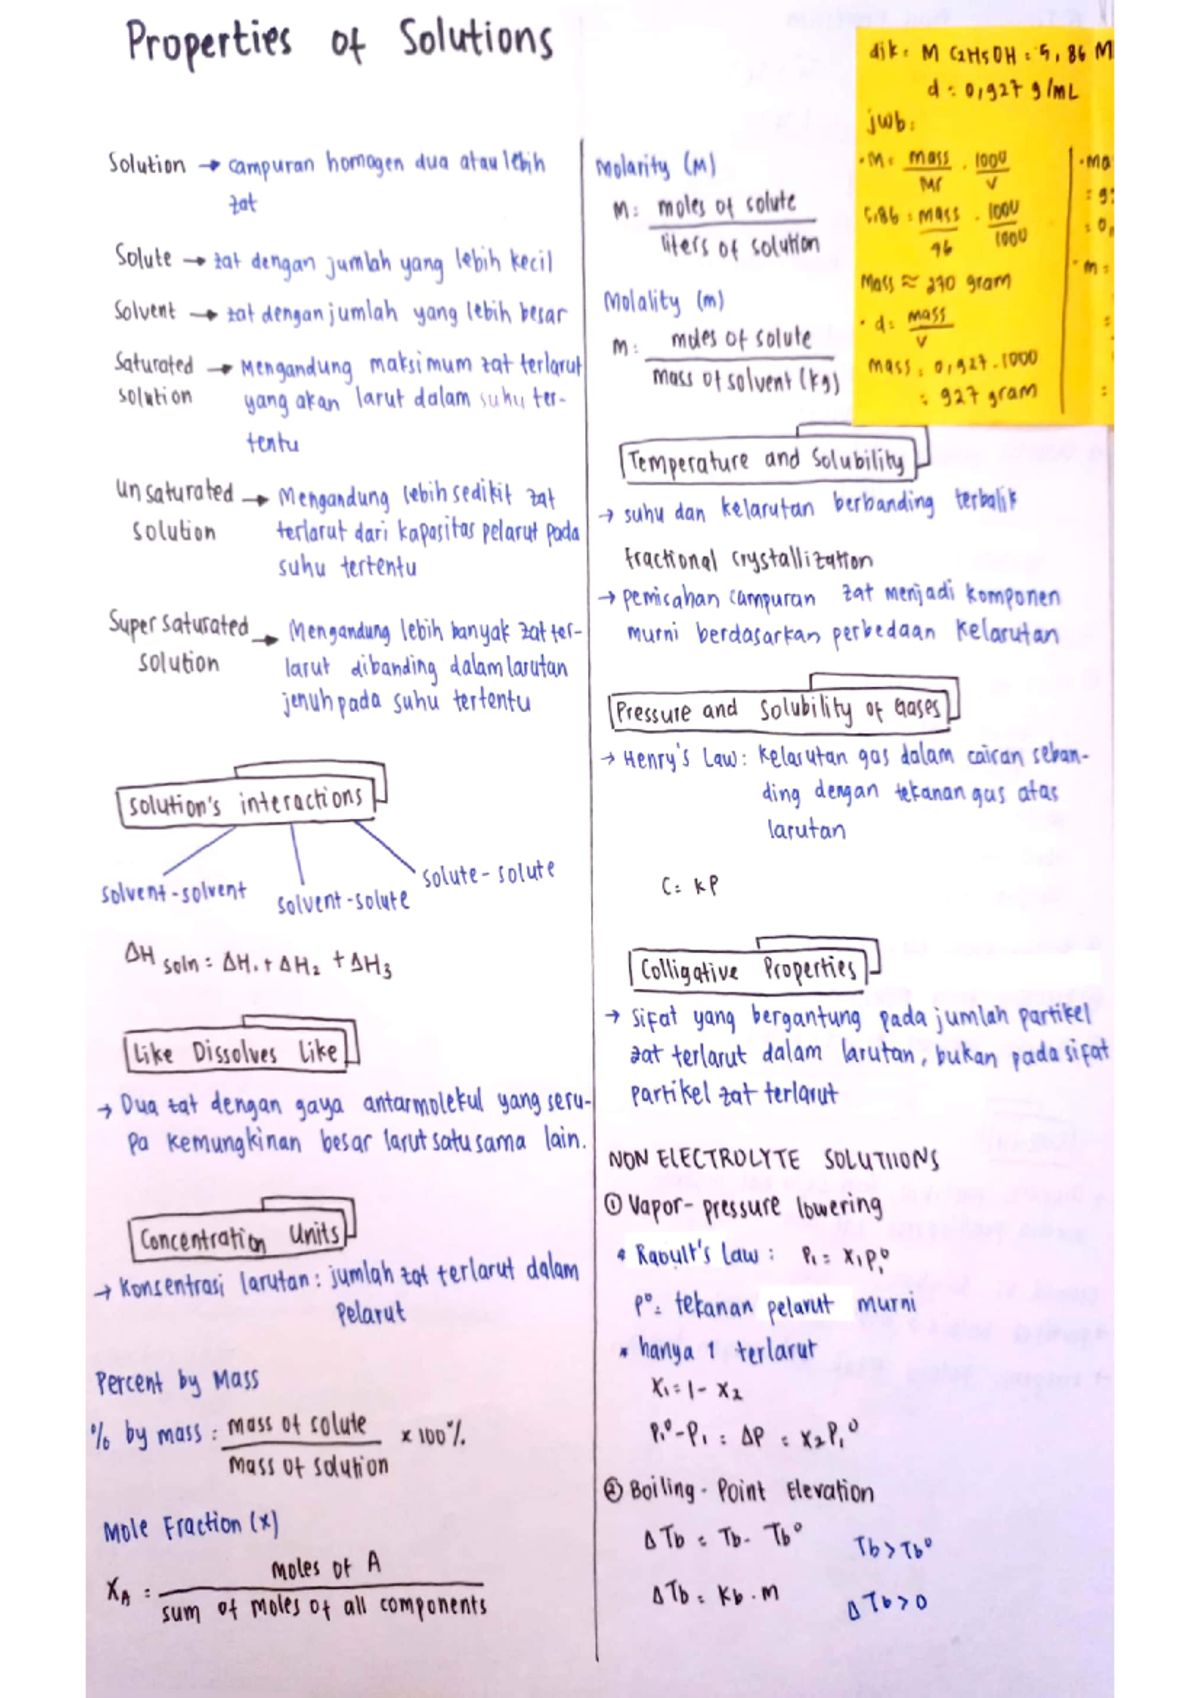 Properties of Solutions
Solution → campuran homogen dua atau lebih
zat
Solute → zat dengan jumlah yang lebih kecil
Solvent → zat dengan jumlah yang lebih besar
Saturated solution → Mengandung maksimum zat terlarut
yang akan larut dalam suhu ter-
tentu
Unsaturated solution → Mengandung lebih sedikit zat
terlarut dari kapasitas pelarut pada
suhu tertentu
Super saturated solution → Mengandung lebih banyak zat ter-
larut dibanding dalam larutan
jenuh pada suhu tertentu
Solution's interactions
solvent-solvent
solvent-solute
solute-solute
ΔH soln = ΔH₁ + ΔH₂ + ΔH₃
Like Dissolves Like
→ Dua zat dengan gaya antarmolekul yang seru-
pa kemungkinan besar larut satu sama lain.
Concentration Units
→ Konsentrasi larutan : jumlah zat terlarut dalam
Pelarut
Percent by Mass
% by mass = mass of solute / mass of solution x 100%
Mole Fraction (x)
XA = moles of A / sum of moles of all components
Molarity (M)
M = moles of solute / liters of solution
Molality (m)
m = moles of solute / mass of solvent (kg)
dik: M C2H5OH = 5,86 M
d = 0,927 g/mL
jwb:
• M = mass / Mr . 1000 / V
5,86 = mass / 46 . 1000 / 1000
Mass ≈ 270 gram
• d = mass / V
mass = 0,927 . 1000
= 927 gram
• ma
= 9
= 0,
• m =
=
=
Temperature and Solubility
→ suhu dan kelarutan berbanding terbalik
Fractional crystallization
→ pemisahan campuran zat menjadi komponen
murni berdasarkan perbedaan kelarutan
Pressure and Solubility of Gases
→ Henry's Law : kelarutan gas dalam cairan seban-
ding dengan tekanan gas atas
larutan
C = kP
Colligative Properties
→ Sifat yang bergantung pada jumlah partikel
zat terlarut dalam larutan, bukan pada sifat
partikel zat terlarut
NON ELECTROLYTE SOLUTIIONS
① Vapor-pressure lowering
* Raoult's Law : P₁ = X₁P₁°
P° = tekanan pelarut murni
* hanya 1 terlarut
X₁ = 1 - X₂
P₁° - P₁ = ΔP = X₂P₁°
② Boiling - Point Elevation
ΔTb = Tb - Tb°
Tb > Tb°
ΔTb = Kb . m
ΔTb > 0